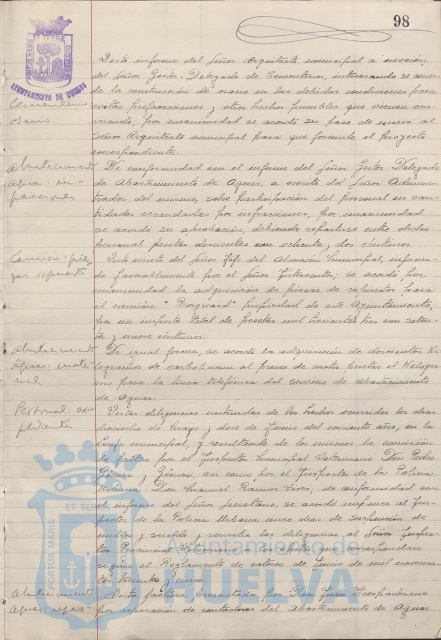 98
AYUNTAMIENTO DE HUELVA
Visto informe del Señor Arquitecto municipal a moción
del Señor Gestor Delegado de Cementerio, interesando se
de la construcción de osario en las debidas condiciones para
evitar profanaciones y otros hechos punibles que vienen
por unanimidad se acordó su pase de nuevo al
Señor Arquitecto municipal para que formule el proyecto
correspondiente.
Cementerio
osario
Abastecimiento
aguas: in-
fracciones
De conformidad con el informe del Señor Gestor Delegado
de Abastecimiento de Aguas, a escrito del Señor Adminis-
trador del mismo, sobre participación del personal en can-
tidades recaudadas por infracciones, por unanimidad
se acordó su aprobación, debiendo repartirse entre dicho
personal pesetas doscientas con y dos céntimos.
Camión: pie-
zas repuesto
Visto escrito del Señor Jefe del Almacén Municipal, informa-
do favorablemente por el Señor Interventor; se acordó por
unanimidad la adquisición de piezas de repuesto para
el camión "Borgward" propiedad de este Ayuntamiento,
por un importe total de pesetas mil trescientas con
y nueve céntimos.
Abastecimiento
aguas: mate-
rial
De igual forma, se acordó la adquisición de doscientos ki-
logramos de al precio de pesetas el kilogra-
mo para la línea telefónica del servicio de abastecimiento
de aguas.
Personal: ex-
pediente
Vistas diligencias instruidas de los hechos ocurridos los días
dieciocho de Mayo y doce de Junio del corriente año, en la
municipal, y resultando de los mismos la comisión
de faltas por el Inspector Municipal Veterinario Don
Gómez y Gómez, así como por el Inspector de la Policía
Urbana, Don Manuel Ramos, de conformidad con
el informe del Señor Secretario, se acordó imponer al Ins-
pector de la Policía Urbana cinco días de suspensión de
empleo y sueldo, y remitir las diligencias al Señor Inspec-
tor Provincial
según el Reglamento de catorce de Junio de mil novecien-
tos treinta y cinco.
Abastecimiento
Aguas:
Vista factura presentada por Don Juan
por reparación de contadores del Abastecimiento de Aguas
Ayuntamiento de
HUELVA
PORTUS MARIS